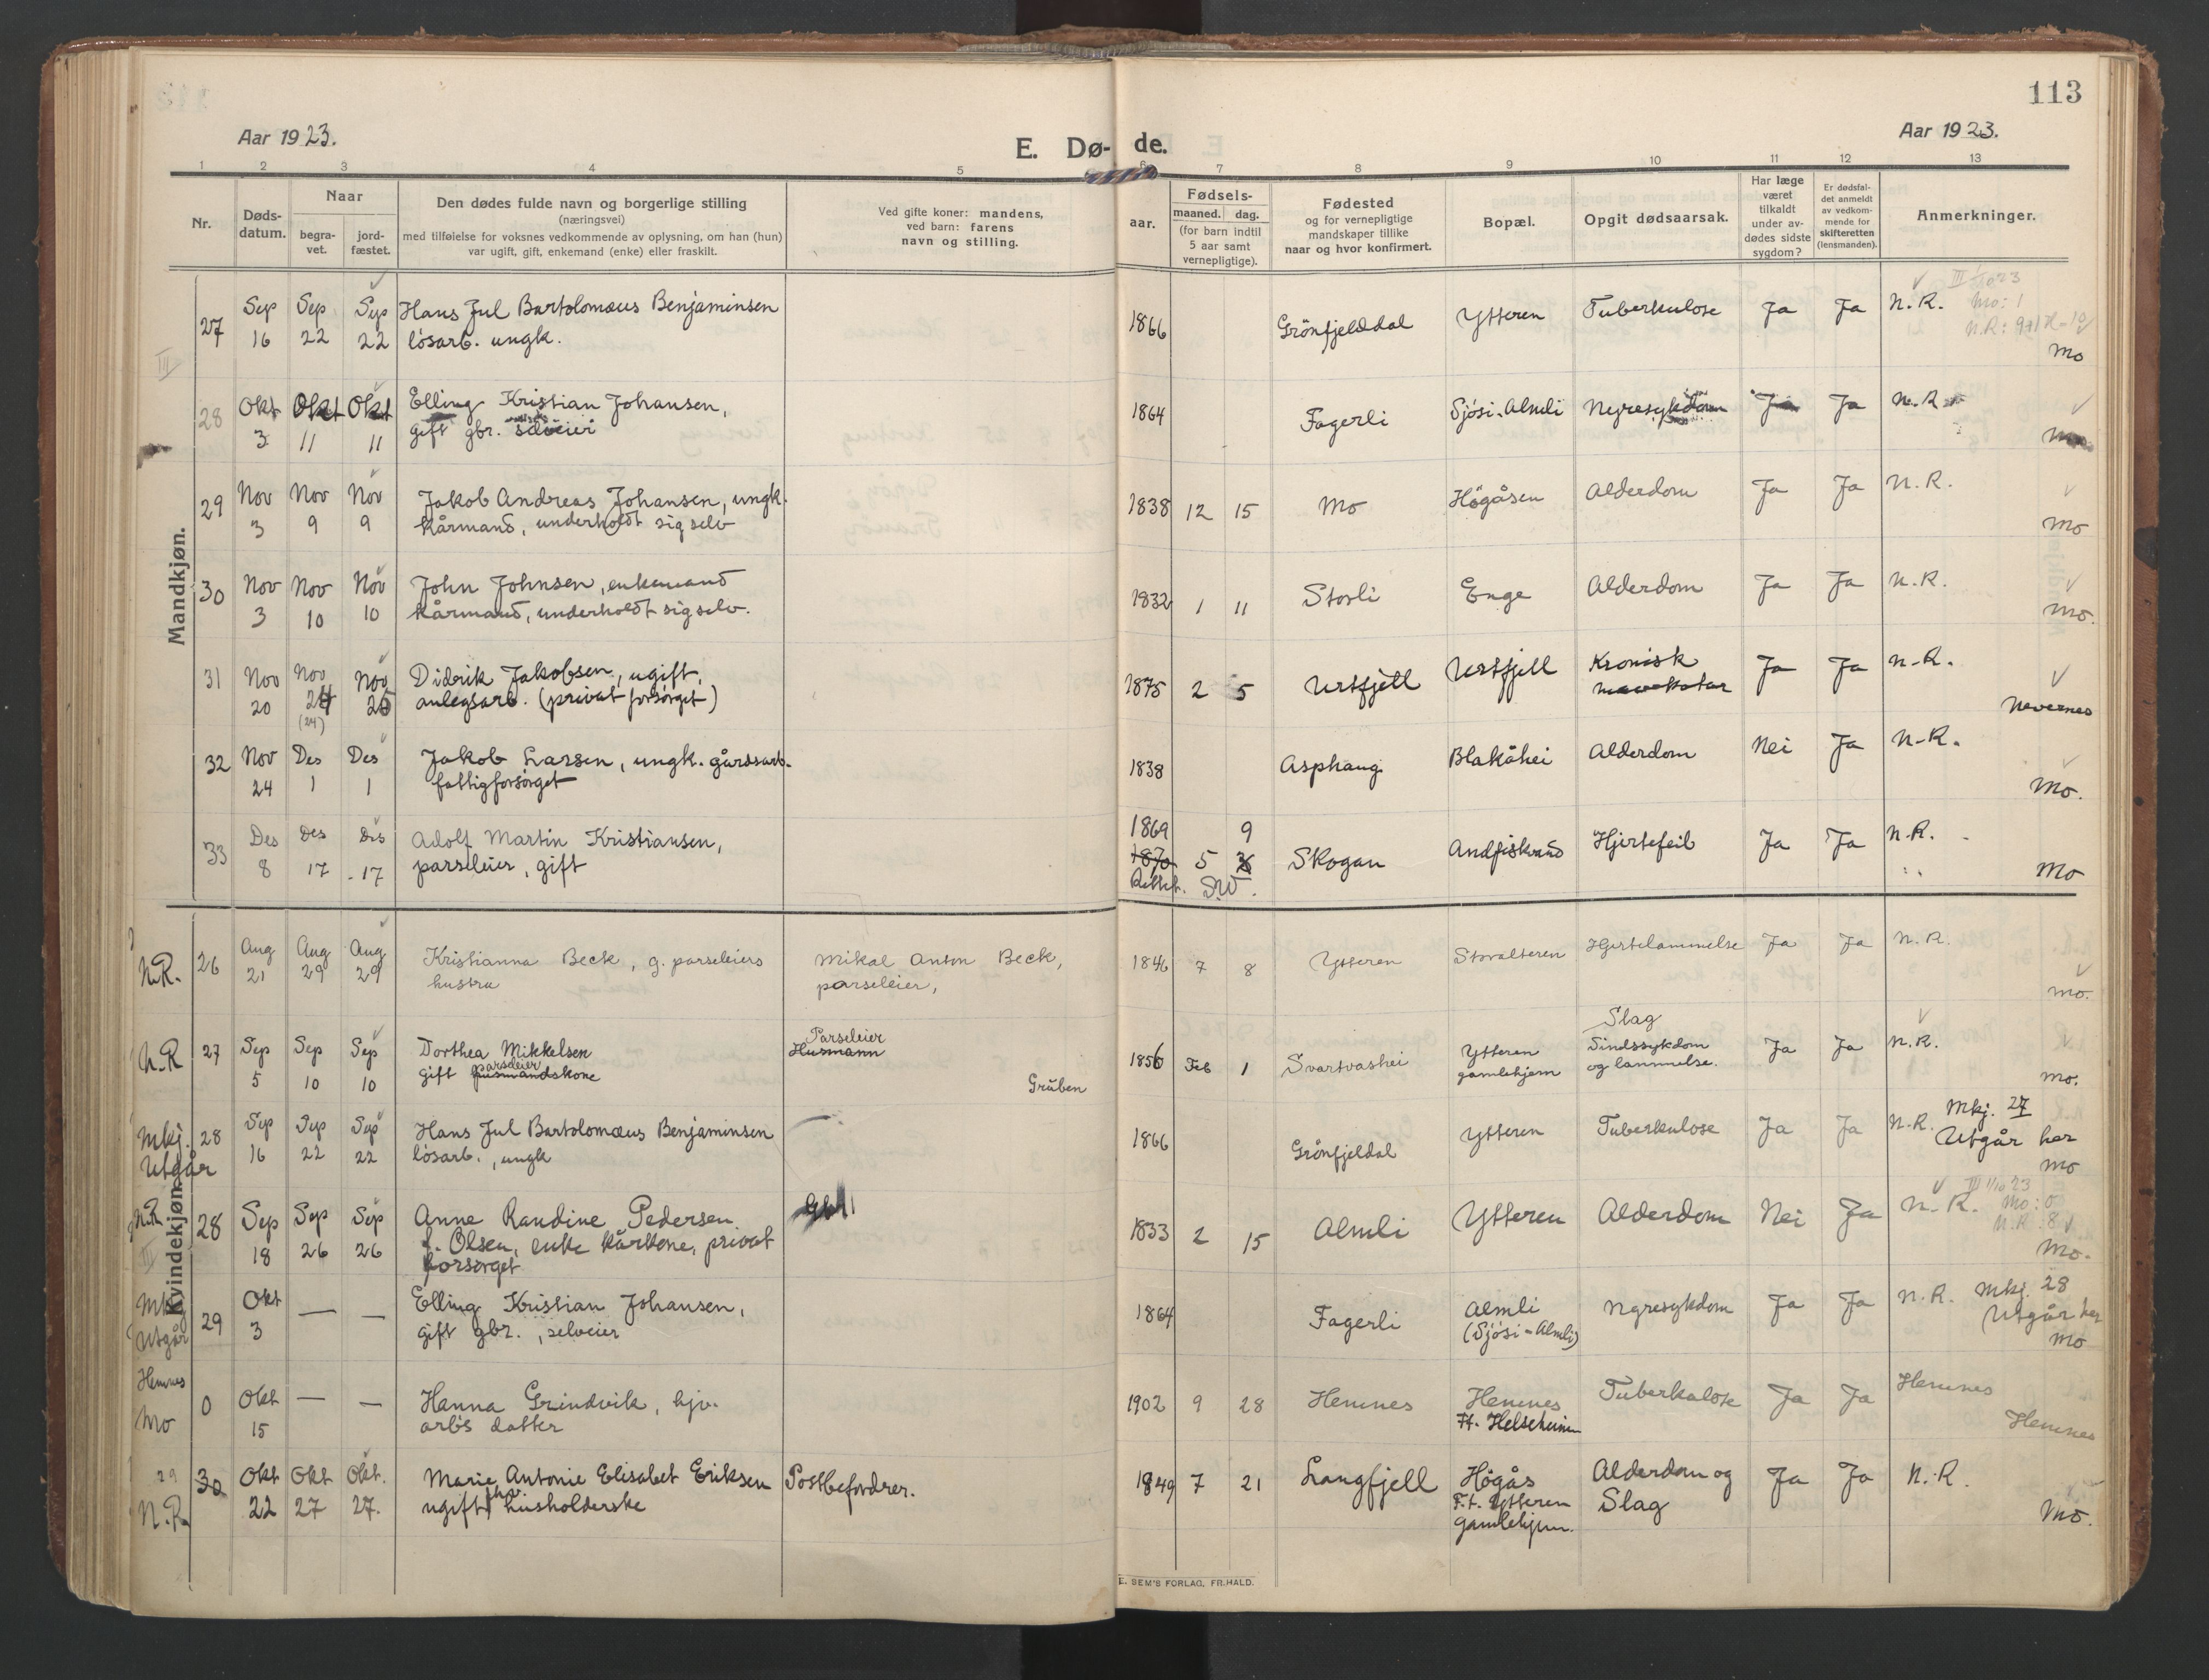 113
Aar 1923.
E. Dø- de.
Aar 1923.
1 2 3 4 5 6 7 8 9 10 11 12 13
Nr.
Døds-
datum.
Naar
begra-
vet.
jord-
fæstet.
Den dødes fulde navn og borgerlige stilling
(næringsvei)
med tilføielse for voksnes vedkommende av oplysning, om han (hun)
var ugift, gift, enkemand (enke) eller fraskilt.
Ved gifte koner: mandens,
ved barn: farens
navn og stilling.
Fødsels-
aar. maaned. dag.
(for barn indtil
5 aar samt
vernepligtige).
Fødested
og for vernepligtige
mandskaper tillike
naar og hvor konfirmert.
Bopæl.
Opgit dødsaarsak.
Har læge
været
tilkaldt
under av-
dødes sidste
sygdom?
Er dødsfal-
det anmeldt
av vedkom-
mende for
skifteretten
(lensmanden).
Anmerkninger.
Mandkjøn.
27 Sep Sep Sep Hans Jul Bartolomæus Benjaminsen 1866 Grönfjelddal Ytteren Tuberkulose Ja Ja N.R. Mo: 1
16 22 22 lösarb. ungk. Mo
III
28 Okt Okt Okt Elling Kristian Johansen, 1864 Fagerli Sjösi-Almli Nyresykdom Ja Ja N.R.
3 11 11 gift gbr. selveier Mo
29 Nov Nov Nov Jakob Andreas Johansen, ungk. 1838 12 15 Mo Högåsen Alderdom Ja Ja N.R.
3 9 9 kårmand, underholdt sig selv Mo
30 Nov Nov Nov John Johnsen, enkemand 1832 1 11 Storli Enge Alderdom Ja Ja N.R.
3 10 10 kårmand, underholdt sig selv. Mo.
31 Nov Nov Nov Didrik Jakobsen, ugift, 1875 2 5 Urtfjell Urtfjell Kronisk Ja Ja N.R.
20 24 25 anlegsarb. (privat forsörget) mavekatar
(24) Nevernes
32 Nov Des Des Jakob Larsen, ungk. gårdsarb. 1838 Asphaug Blakåhei Alderdom Nei Ja N.R.
24 1 1 fattigforsörget Mo.
33 Des Des Des Adolf Martin Kristiansen, 1869 9
8 17 17 parseleier, gift 1870 5 Skogan Andfiskvand Hjertefeil Ja Ja N.R.
Rettet. Mo
Kvindekjøn.
N.R. 26 Aug Aug Aug Kristianna Beck, g. parseleiers Mikal Anton Beck, 1846 7 8 Ytteren Storalteren Hjertelammelse Ja Ja N.R.
21 29 29 hustru parseleier, Mo.
Slag
N.R 27 Sep Sep Sep Dorthea Mikkelsen Parseleier Husmann 1856 Feb 1 Svartvashei Ytteren Sindssykdom Ja Ja N.R.
5 10 10 gift husmandskone parseleier Gruben gamlehjem og lammelse. Mo.
Mkj. 28 Sep Sep Sep Hans Jul Bartolomæus Benjaminsen 1866 Grönfjeldal Ytteren Tuberkulose Ja Ja N.R. Mkj. 27
Utgår 16 22 22 lösarb., ungk Utgår her
Mo
N.R. 28 Sep Sep Sep Anne Randine Pedersen 1833 2 15 Almli Ytteren Alderdom Nei Ja N.R. Mo: 0
III 18 26 26 f. Olsen, enke kårkone, privat N.R: 8
forsörget Mo.
Mkj 29 Okt — — Elling Kristian Johansen, 1864 Fagerli Almli Nyresykdom Ja Ja N.R. Mkj. 28
Utgår 3 gift gbr., selveier (Sjösi-Almli) Utgår her
Mo
Hemnes 0 Okt — — Hanna Grindvik, hjv. 1902 9 28 Hemnes Hemnes Tuberkulose Ja Ja Hemnes
Mo 15 arb's datter Ft. Helseheim Hemnes
29 30 Okt Okt Okt. Marie Antonie Elisabet Eriksen Postbefordrer. 1849 7 21 Langfjell Högås Alderdom og Ja Ja N.R.
N.R. 22 27 27. ugift husholderske F.t. Ytteren Slag Mo.
gamlehjem.
E. SEM'S FORLAG, FR.HALD.